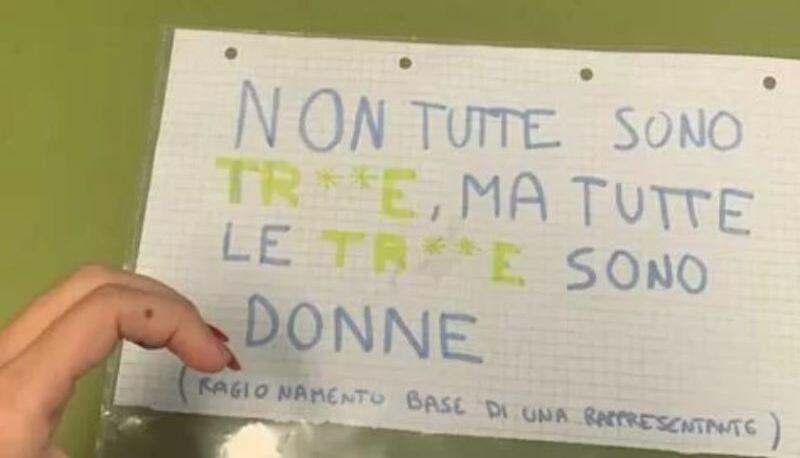 NON TUTTE SONO
TR**E, MA TUTTE
LE TR**E SONO
DONNE
(RAGIONAMENTO BASE DI UNA RAPPRESENTANTE)